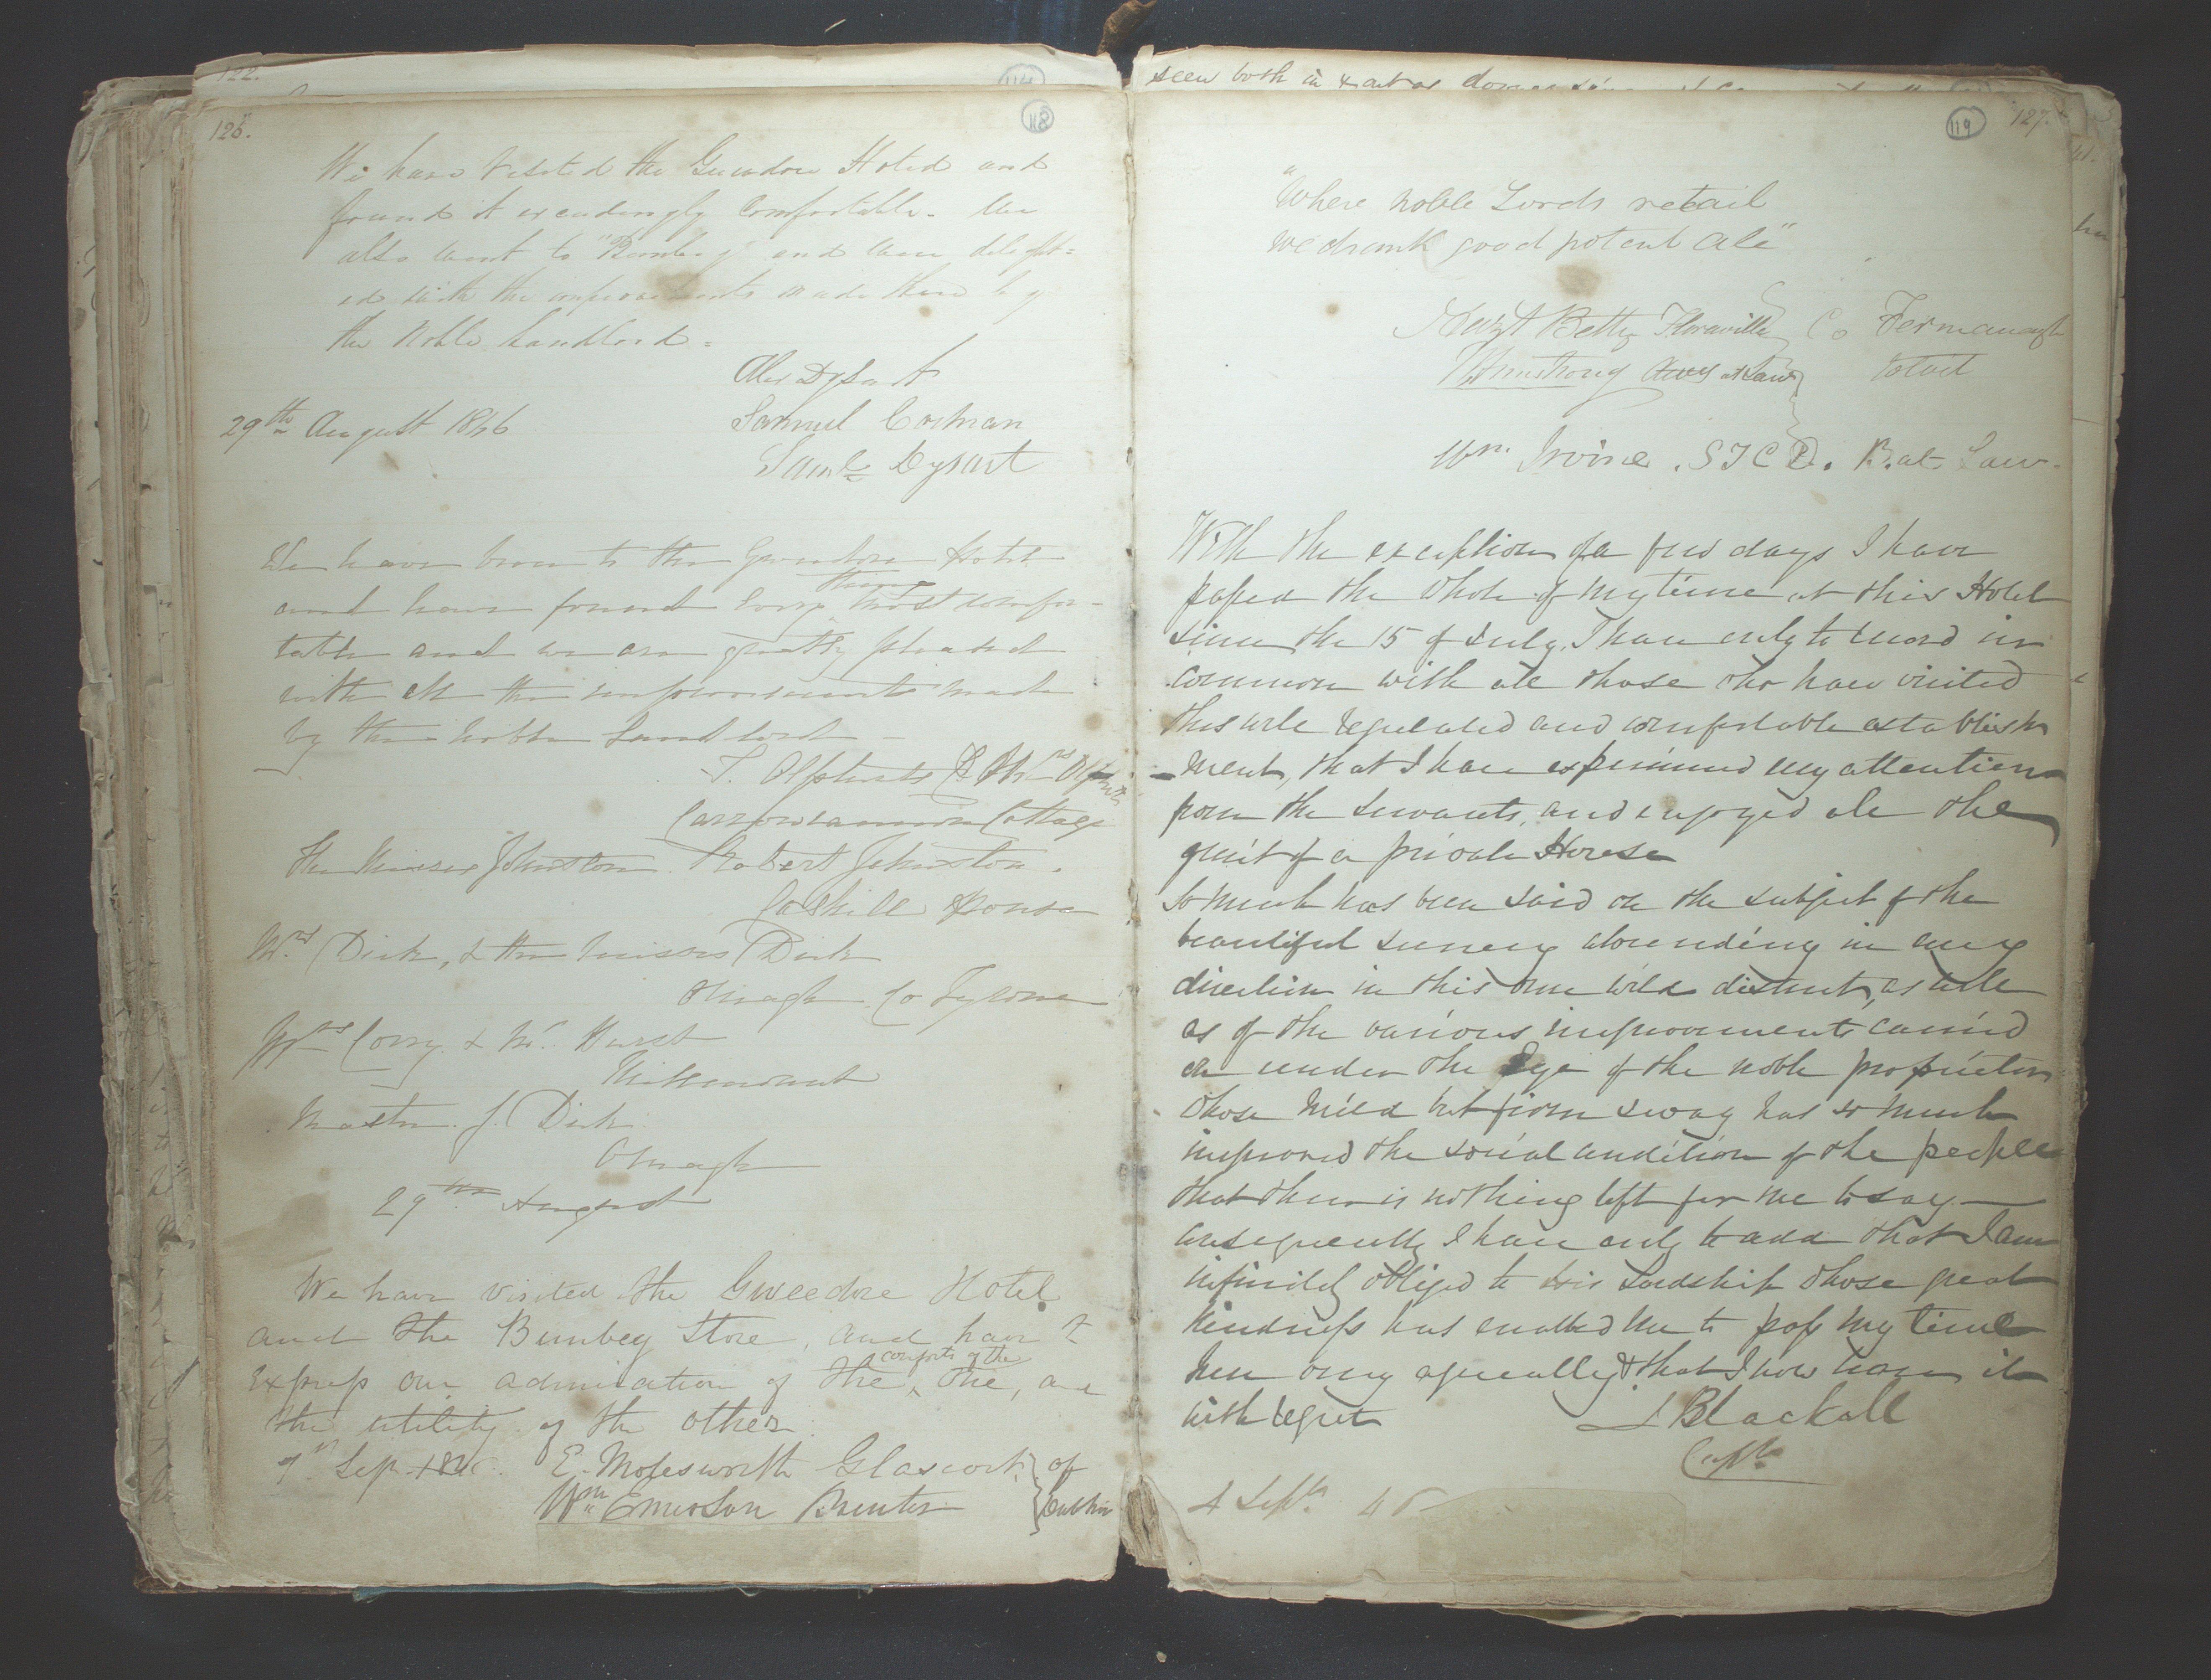 122.
114
126.
118
We have visited the Gweedore Hotel and
found it exceedingly comfortable. We
also went to "Bunbeg" and were delight=
ed with the improvements made there by
the Noble Landlord.
Alex Dysart
29th August 1846
Samuel Cochran
Saml Dysart
We have been to the Gweedore Hotel
and have found every thing most comfor-
table and we are greatly pleased
with all the improvements made
by the noble Landlord -
T. Olpherts & Mrs Olpherts
Cottage
The Misses Johnston. Robert Johnston.
House
Mrs Dick, & the Misses Dick
Omagh Co Tyrone
Mrs Corry & Mr. Hurst
Master J. Dick
Omagh
29th August
We have visited the Gweedore Hotel
and the Bunbeg Store, and have to
Express our admiration of the comforts of the one, and
the utility of the other.
Sep. 1846. E. Molesworth Glascock } of
Wm Emerson } Dublin
seen both in & out of doors
119
127.
"Where noble Lords retail
we drank good potent Ale"
Betty Floraville Co Fermanagh
Armstrong Atty at Law
Wm. Irvine. S T C D. B. at Law.
With the exception of a few days I have
passed the whole of my time at this Hotel
since the 15 of July. I have only to record in
common with all those who have visited
this well regulated and comfortable establish
-ment, that I have experienced every attention
from the servants, and enjoyed all the
quiet of a private House
So much has been said on the subject of the
beautiful scenery abounding in every
direction in this once wild district, as well
as of the various improvements carried
on under the Eye of the noble proprietor
whose mild but firm sway has so much
improved the social condition of the people
that there is nothing left for me to say —
consequently I have only to add that I am
infinitely obliged to his Lordship whose great
kindness has enabled me to pass my time
here very agreeably & that I now leave it
with regret
J Blackall
Captn
4 Septr. 46